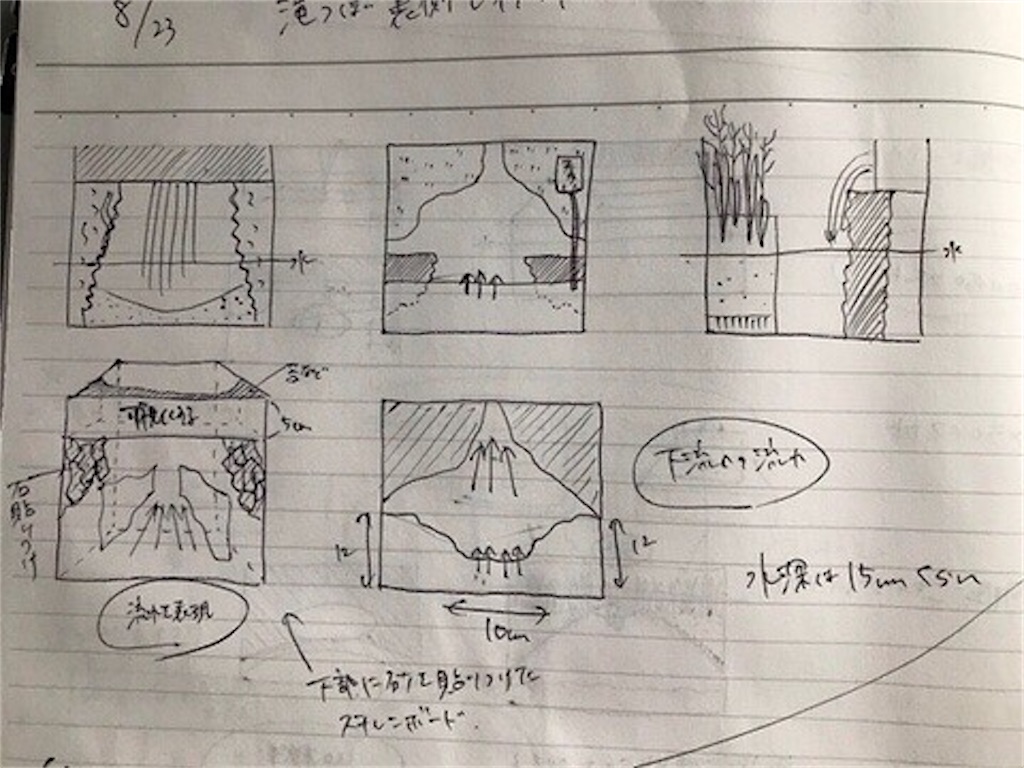 8/23
滝つぼ 表側
水
水
苔など
5cm
石貼りつけ
下流への流れ
12
12
水深は15cmくらい
流れを表現
10cm
下部に砂を貼りつけた
スチレンボード.